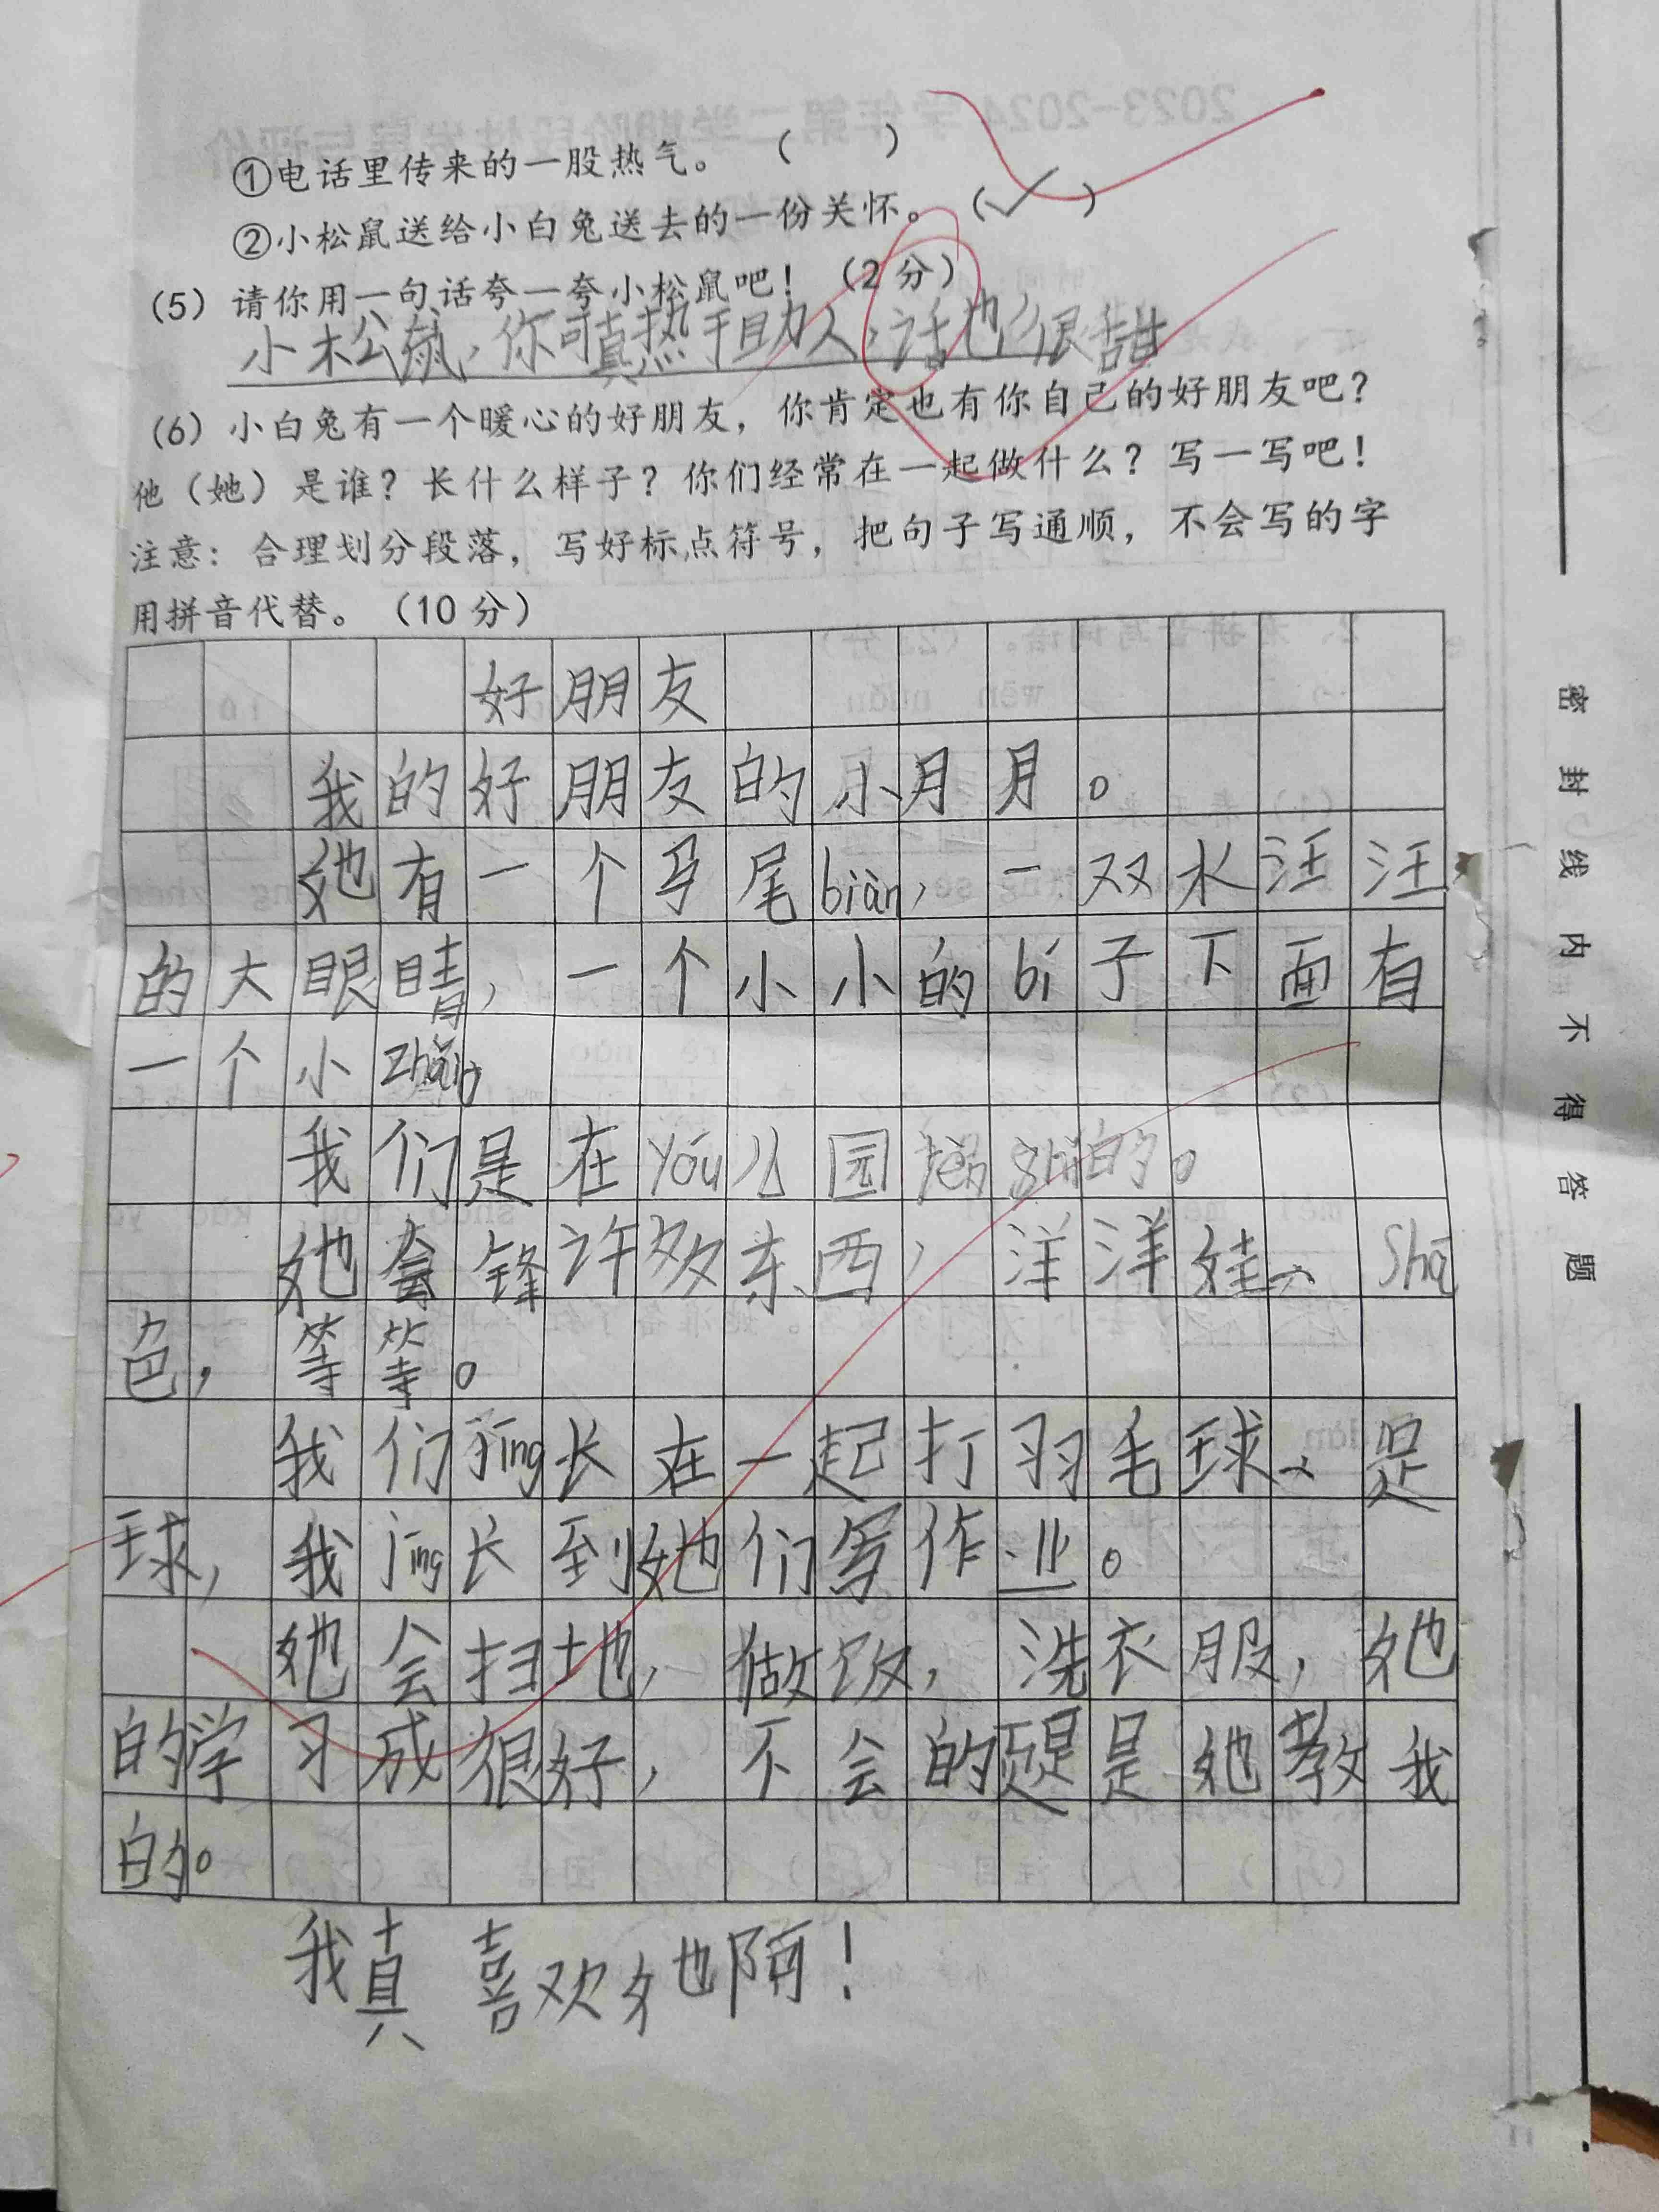 ①电话里传来的一股热气。（　　）
②小松鼠送给小白兔送去的一份关怀。（✓）
（5）请你用一句话夸一夸小松鼠吧！（2分）
小松鼠，你可真热于助人，话也很甜
（6）小白兔有一个暖心的好朋友，你肯定也有你自己的好朋友吧？
他（她）是谁？长什么样子？你们经常在一起做什么？写一写吧！
注意：合理划分段落，写好标点符号，把句子写通顺，不会写的字
用拼音代替。（10分）
好朋友
我的好朋友的小月月。
她有一个马尾biàn，一双水汪汪
的大眼睛，一个小小的bí子下面有
一个小
我们是在yóu儿园的。
她许多东西，洋洋娃、shā
色，等等。
我们jīng长在一起打羽毛球、是
球，我jīng长到她们写作业。
她会扫地，做饭，洗衣服，她
的学习成很好，不会的题是她教我
的。
我真喜欢她啊！
密封线内不得答题